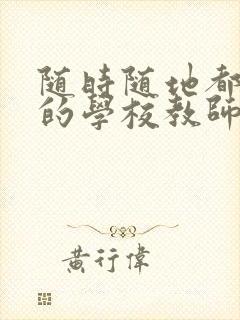 随時随地都
的學校教師
黃行偉